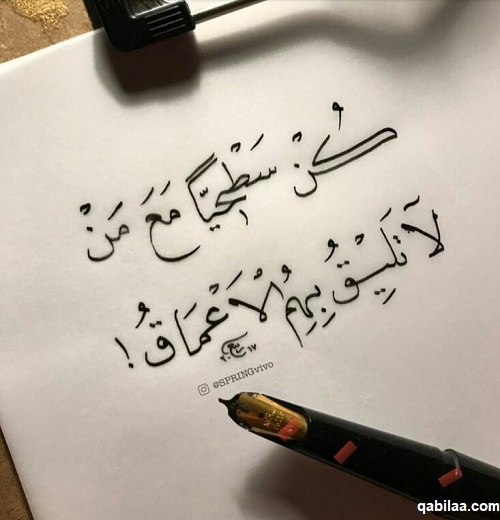 كُنْ سَطْحِيًّا مَعَ مَنْ
لَا تَلِيْقُ بِهِمُ الْأَعْمَاقُ !
@SPRINGvivo
qabilaa.com